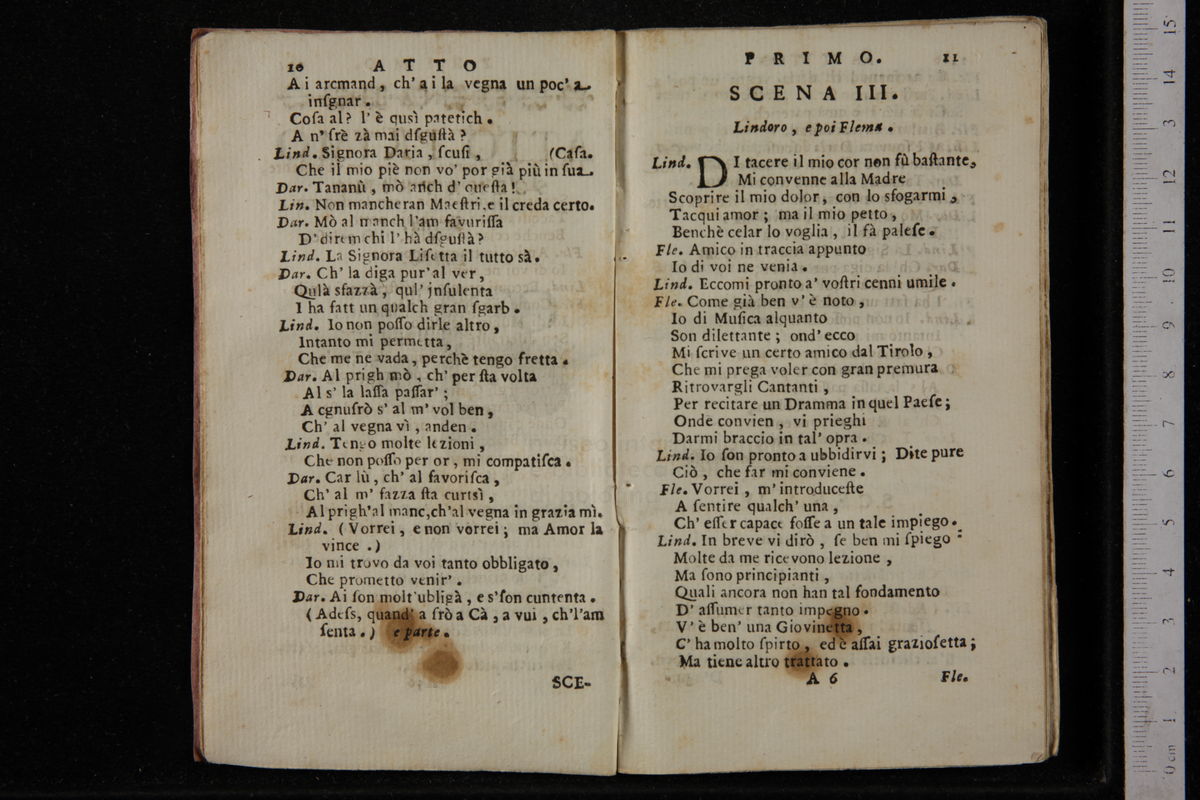 10 ATTO
A i arcmand, ch' a i la vegna un poc' a
inſgnar.
Coſa al? l' è qusì patetich.
A n' frè zà mai dſguſtà?
Lind. Signora Daria, ſcuſi, (Caſa.
Che il mio piè non vo' por già più in ſua
Dar. Tananù, mò anch d' queſta!
Lin. Non mancheran Maeſtri, e il creda certo.
Dar. Mò al manch l'am favuriſſa
D' direm chi l' hà dſguſtà?
Lind. La Signora Liſetta il tutto sà.
Dar. Ch' la diga pur' al ver,
Qulà sfazzà, qul' jnſulenta
I ha fatt un qualch gran ſgarb.
Lind. Io non poſſo dirle altro,
Intanto mi permetta,
Che me ne vada, perchè tengo fretta.
Dar. Al prigh mò, ch' per ſta volta
Al s' la laſſa paſſar';
A cgnuſrò s' al m' vol ben,
Ch' al vegna vì, anden.
Lind. Tengo molte lezioni,
Che non poſſo per or, mi compatiſca.
Dar. Car lù, ch' al favoriſca,
Ch' al m' fazza ſta curtsì,
Al prigh'al manc,ch'al vegna in grazia mì.
Lind. (Vorrei, e non vorrei; ma Amor la
vince.)
Io mi trovo da voi tanto obbligato,
Che prometto venir'.
Dar. Ai ſon molt'ubligà, e s'ſon cuntenta.
(Adeſs, quand' a frò a Cà, a vui, ch'l'am
ſenta.) e parte.
SCE-
PRIMO. 11
SCENA III.
Lindoro, e poi Flema.
Lind. DI tacere il mio cor non fù baſtante,
Mi convenne alla Madre
Scoprire il mio dolor, con lo sfogarmi,
Tacqui amor; ma il mio petto,
Benchè celar lo voglia, il fà paleſe.
Fle. Amico in traccia appunto
Io di voi ne venia.
Lind. Eccomi pronto a' voſtri cenni umile.
Fle. Come già ben v' è noto,
Io di Muſica alquanto
Son dilettante; ond' ecco
Mi ſcrive un certo amico dal Tirolo,
Che mi prega voler con gran premura
Ritrovargli Cantanti,
Per recitare un Dramma in quel Paeſe;
Onde convien, vi prieghi
Darmi braccio in tal' opra.
Lind. Io ſon pronto a ubbidirvi; Dite pure
Ciò, che far mi conviene.
Fle. Vorrei, m' introduceſte
A ſentire qualch' una,
Ch' eſſer capace foſſe a un tale impiego.
Lind. In breve vi dirò, ſe ben mi ſpiego:
Molte da me ricevono lezione,
Ma ſono principianti,
Quali ancora non han tal fondamento
D' aſſumer tanto impegno.
V' è ben' una Giovinetta,
C' ha molto ſpirto, ed è aſſai grazioſetta;
Ma tiene altro trattato.
A 6 Fle.
0 cm 1 2 3 4 5 6 7 8 9 10 11 12 3 14 15